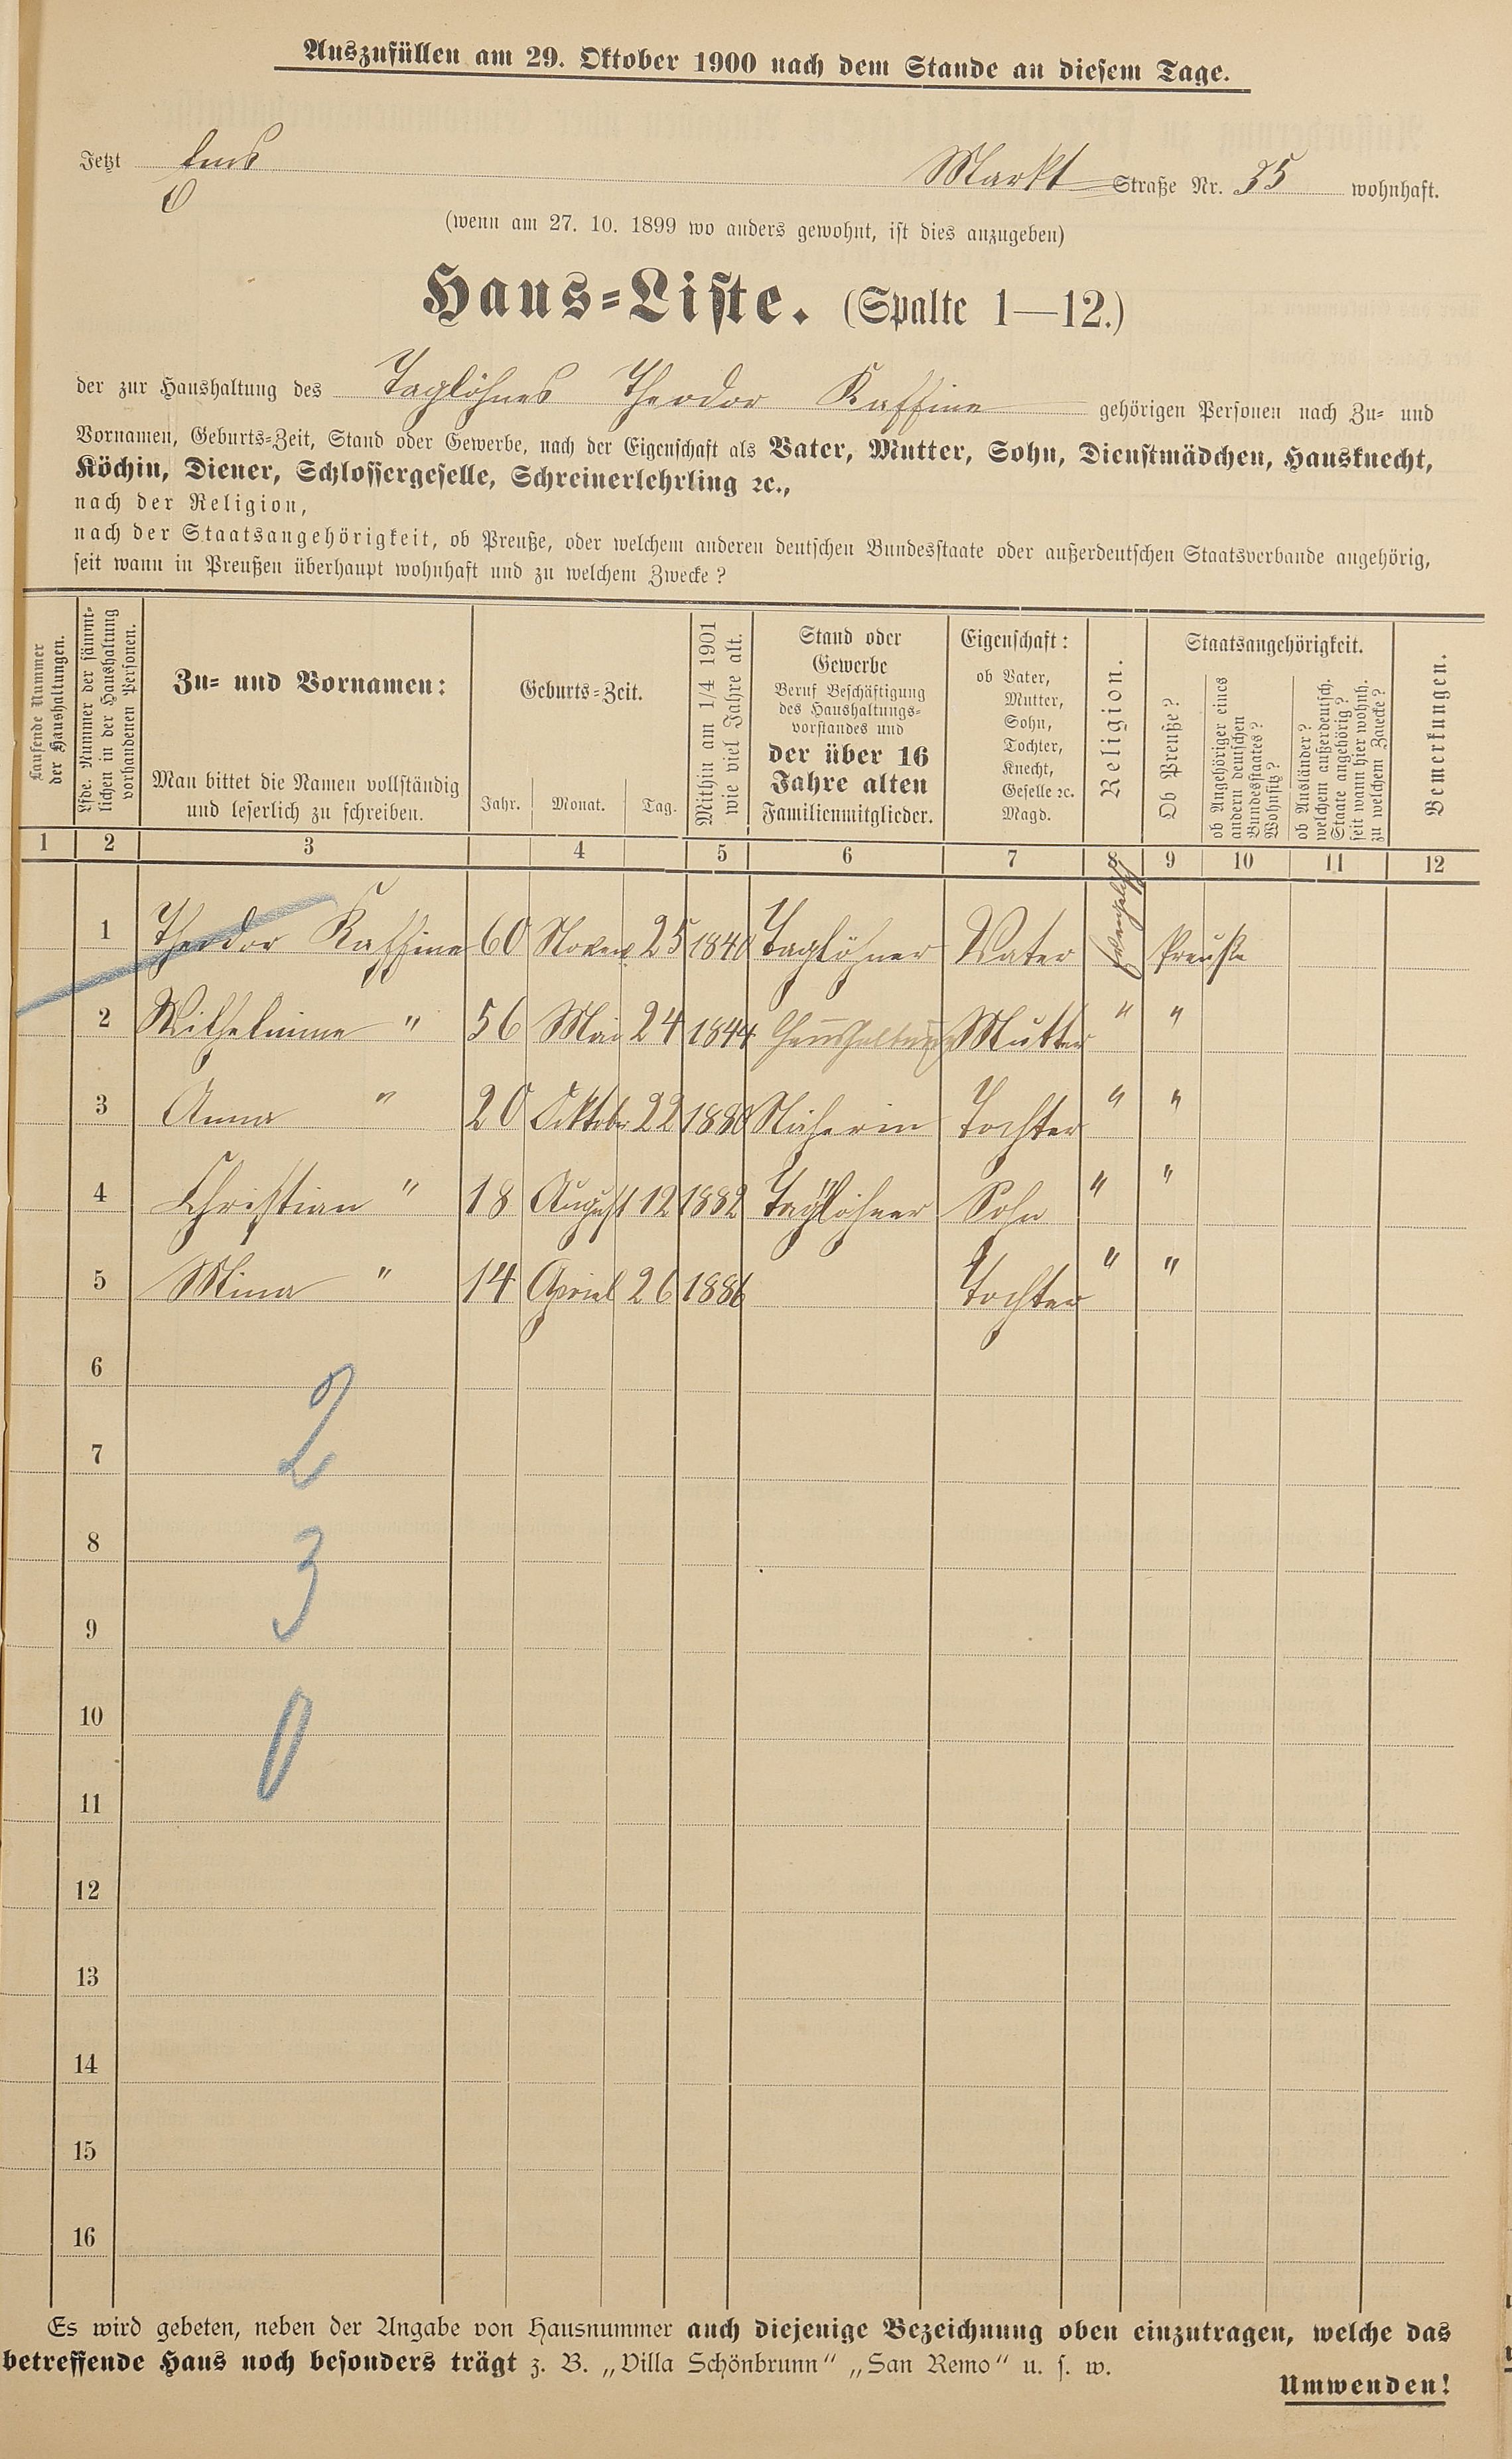 Auszufüllen am 29. Oktober 1900 nach dem Stande an diesem Tage.
Jetzt Ems Markt Straße Nr. 35 wohnhaft.
(wenn am 27. 10. 1899 wo anders gewohnt, ist dies anzugeben)
Haus-Liste. (Spalte 1—12.)
der zur Haushaltung des Taglöhners Theodor Kaffine gehörigen Personen nach Zu- und
Vornamen, Geburts-Zeit, Stand oder Gewerbe, nach der Eigenschaft als Vater, Mutter, Sohn, Dienstmädchen, Hausknecht,
Köchin, Diener, Schlossergeselle, Schreinerlehrling ꝛc.,
nach der Religion,
nach der Staatsangehörigkeit, ob Preuße, oder welchem anderen deutschen Bundesstaate oder außerdeutschen Staatsverbande angehörig,
seit wann in Preußen überhaupt wohnhaft und zu welchem Zwecke?
Laufende Nummer
der Haushaltungen.
Lfde. Nummer der sämmt-
lichen in der Haushaltung
vorhandenen Personen.
Zu- und Vornamen:
Man bittet die Namen vollständig
und leserlich zu schreiben.
Geburts-Zeit.
Jahr. Monat. Tag.
Mithin am 1/4 1901
wie viel Jahre alt.
Stand oder
Gewerbe
Beruf Beschäftigung
des Haushaltungs-
vorstandes und
der über 16
Jahre alten
Familienmitglieder.
Eigenschaft:
ob Vater,
Mutter,
Sohn,
Tochter,
Knecht,
Geselle ꝛc.
Magd.
Religion.
Staatsangehörigkeit.
Ob Preuße?
ob Angehöriger eines
andern deutschen
Bundesstaates?
Wohnsitz?
ob Ausländer?
welchem außerdeutsch.
Staate angehörig?
seit wann hier wohnh.
zu welchem Zwecke?
Bemerkungen.
1 2 3 4 5 6 7 8 9 10 11 12
1 Theodor Kaffine 60 Novem. 25 1840 Taglöhner Vater Preuße
2 Wilhelmine " 56 Mai 24 1844 Haushaltung Mutter " "
3 Anna " 20 Oktober 22 1880 Näherin Tochter " "
4 Christian " 18 August 12 1882 Taglöhner Sohn " "
5 Mina " 14 Apriel 26 1886 Tochter " "
6
2
7
8
3
9
10
0
11
12
13
14
15
16
Es wird gebeten, neben der Angabe von Hausnummer auch diejenige Bezeichnung oben einzutragen, welche das
betreffende Haus noch besonders trägt z. B. „Villa Schönbrunn“ „San Remo“ u. s. w.
Umwenden!